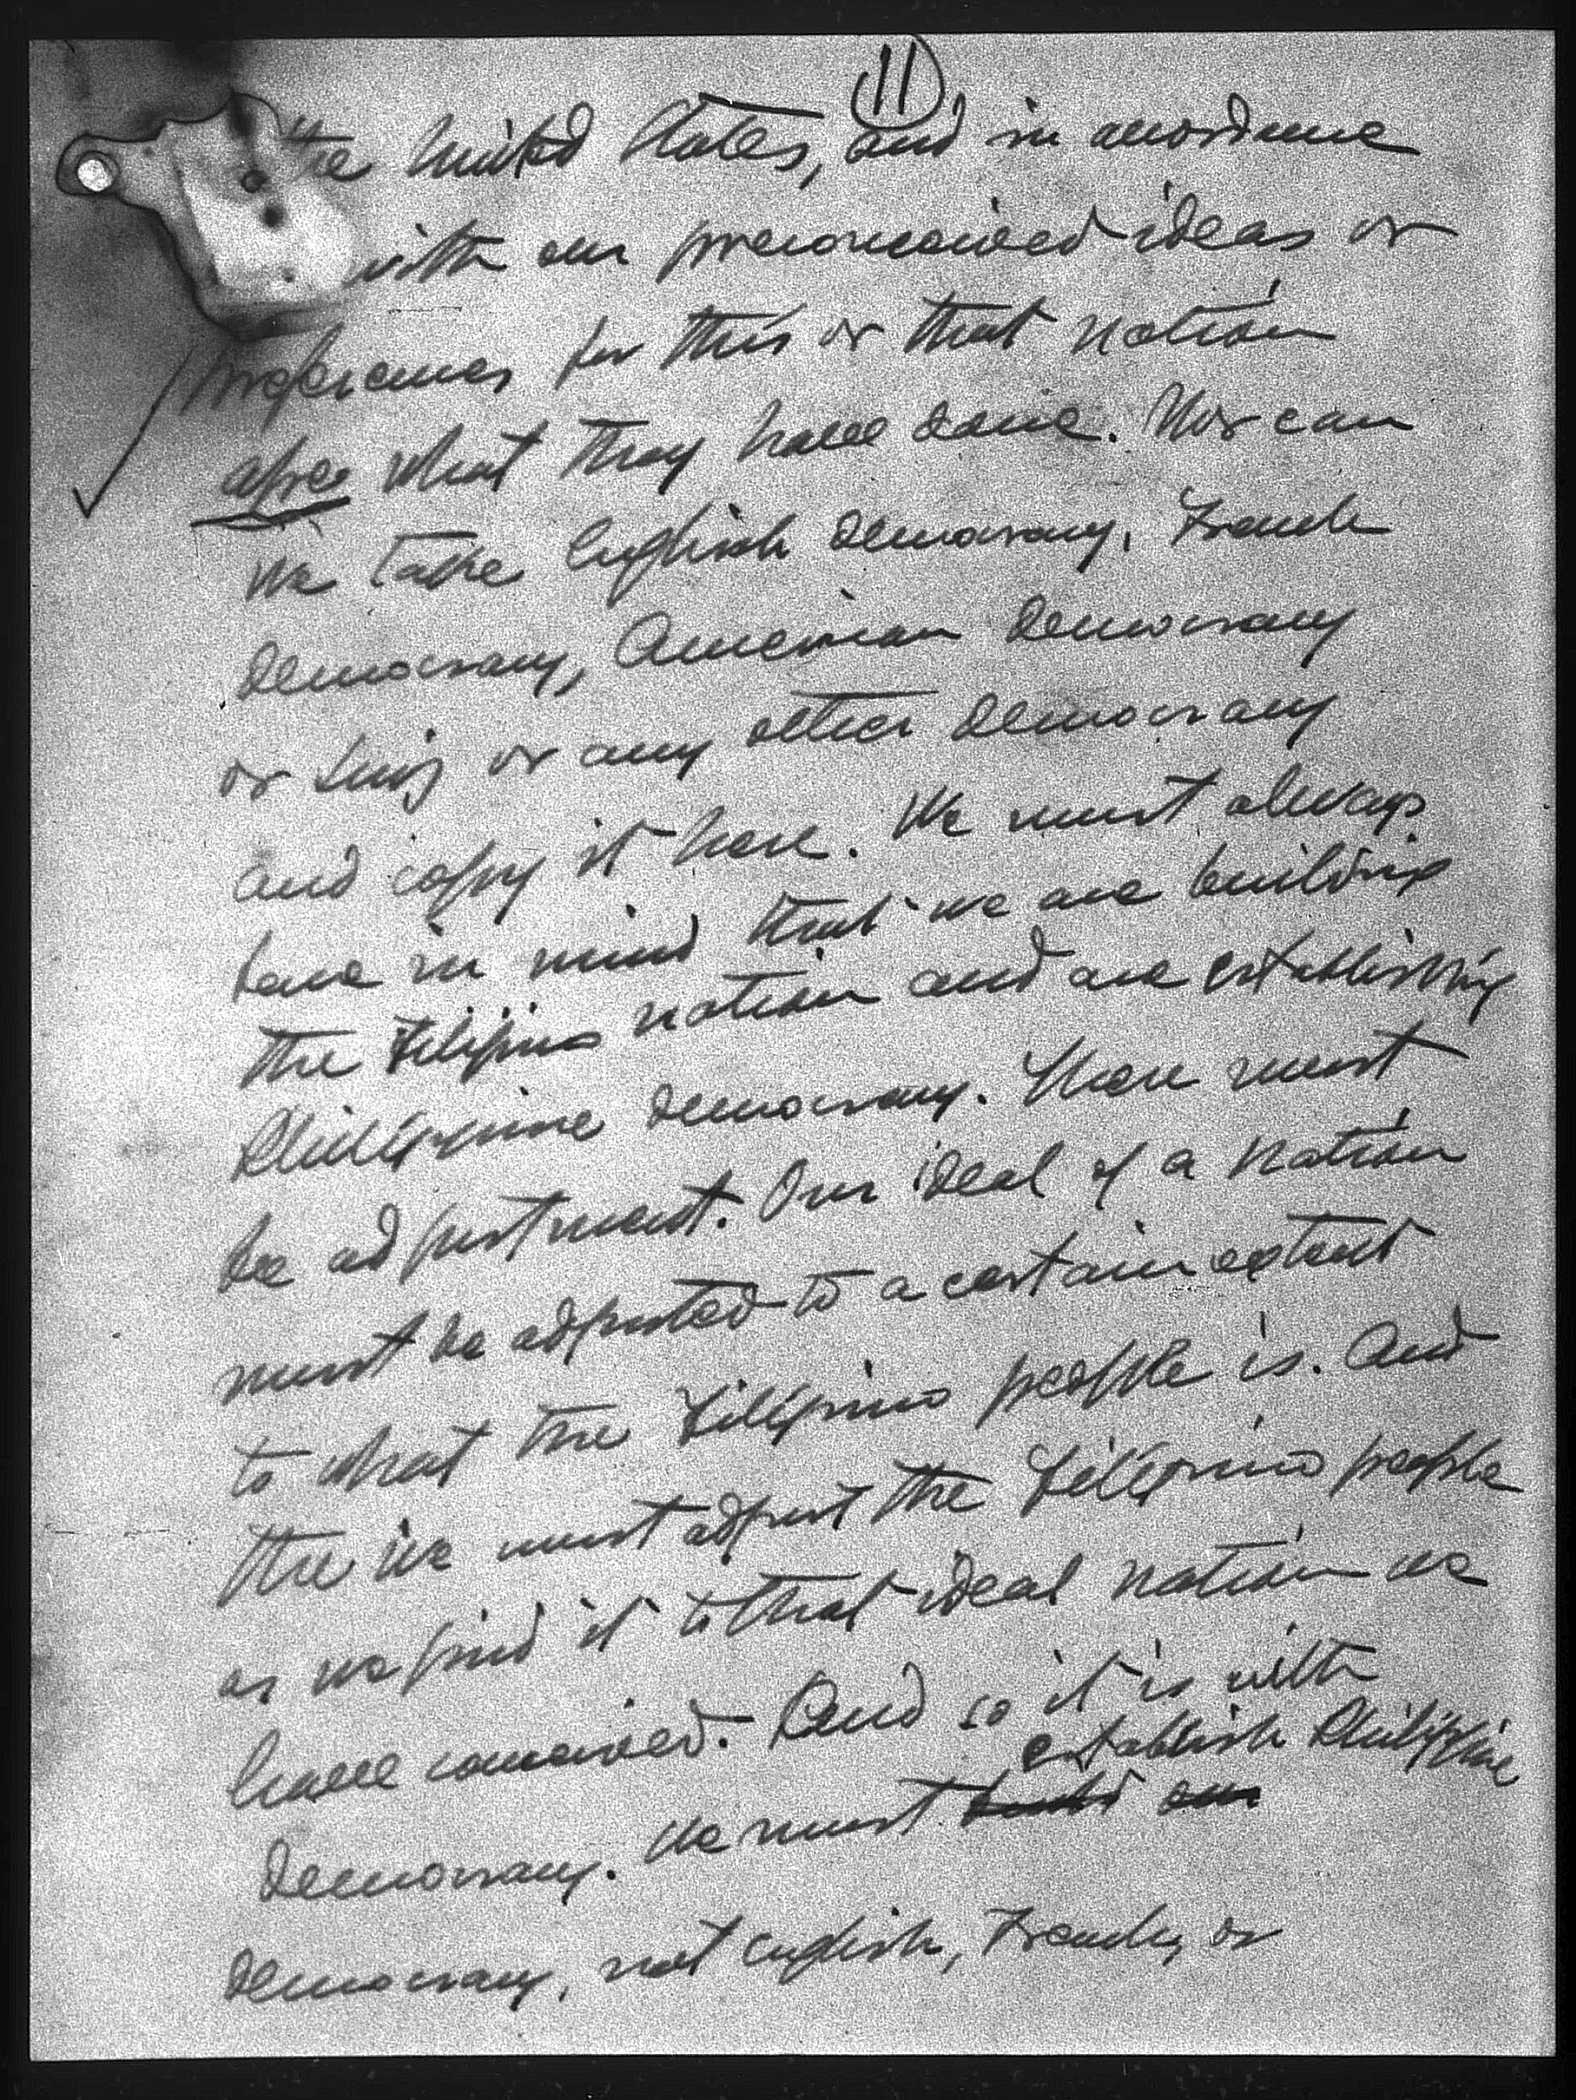 11
the United States, and in accordance
with our preconceived ideas or
preferences for this or that nation
apee what they have done. Nor can
we take English democracy, French
democracy, American democracy
or Swiss or any other democracy
and copy it here. We must always
have in mind that we are building
the Filipino nation and are establishing
Philippine democracy. There must
be adjustment. Our ideal of a nation
must be adjusted to a certain extent
to what the Filipino people is. And
the we must adjust the Filipino people
as we find it to that ideal nation we
have conceived. And so it is with
establish Philippine
democracy. We must build our
democracy, not English, French, or